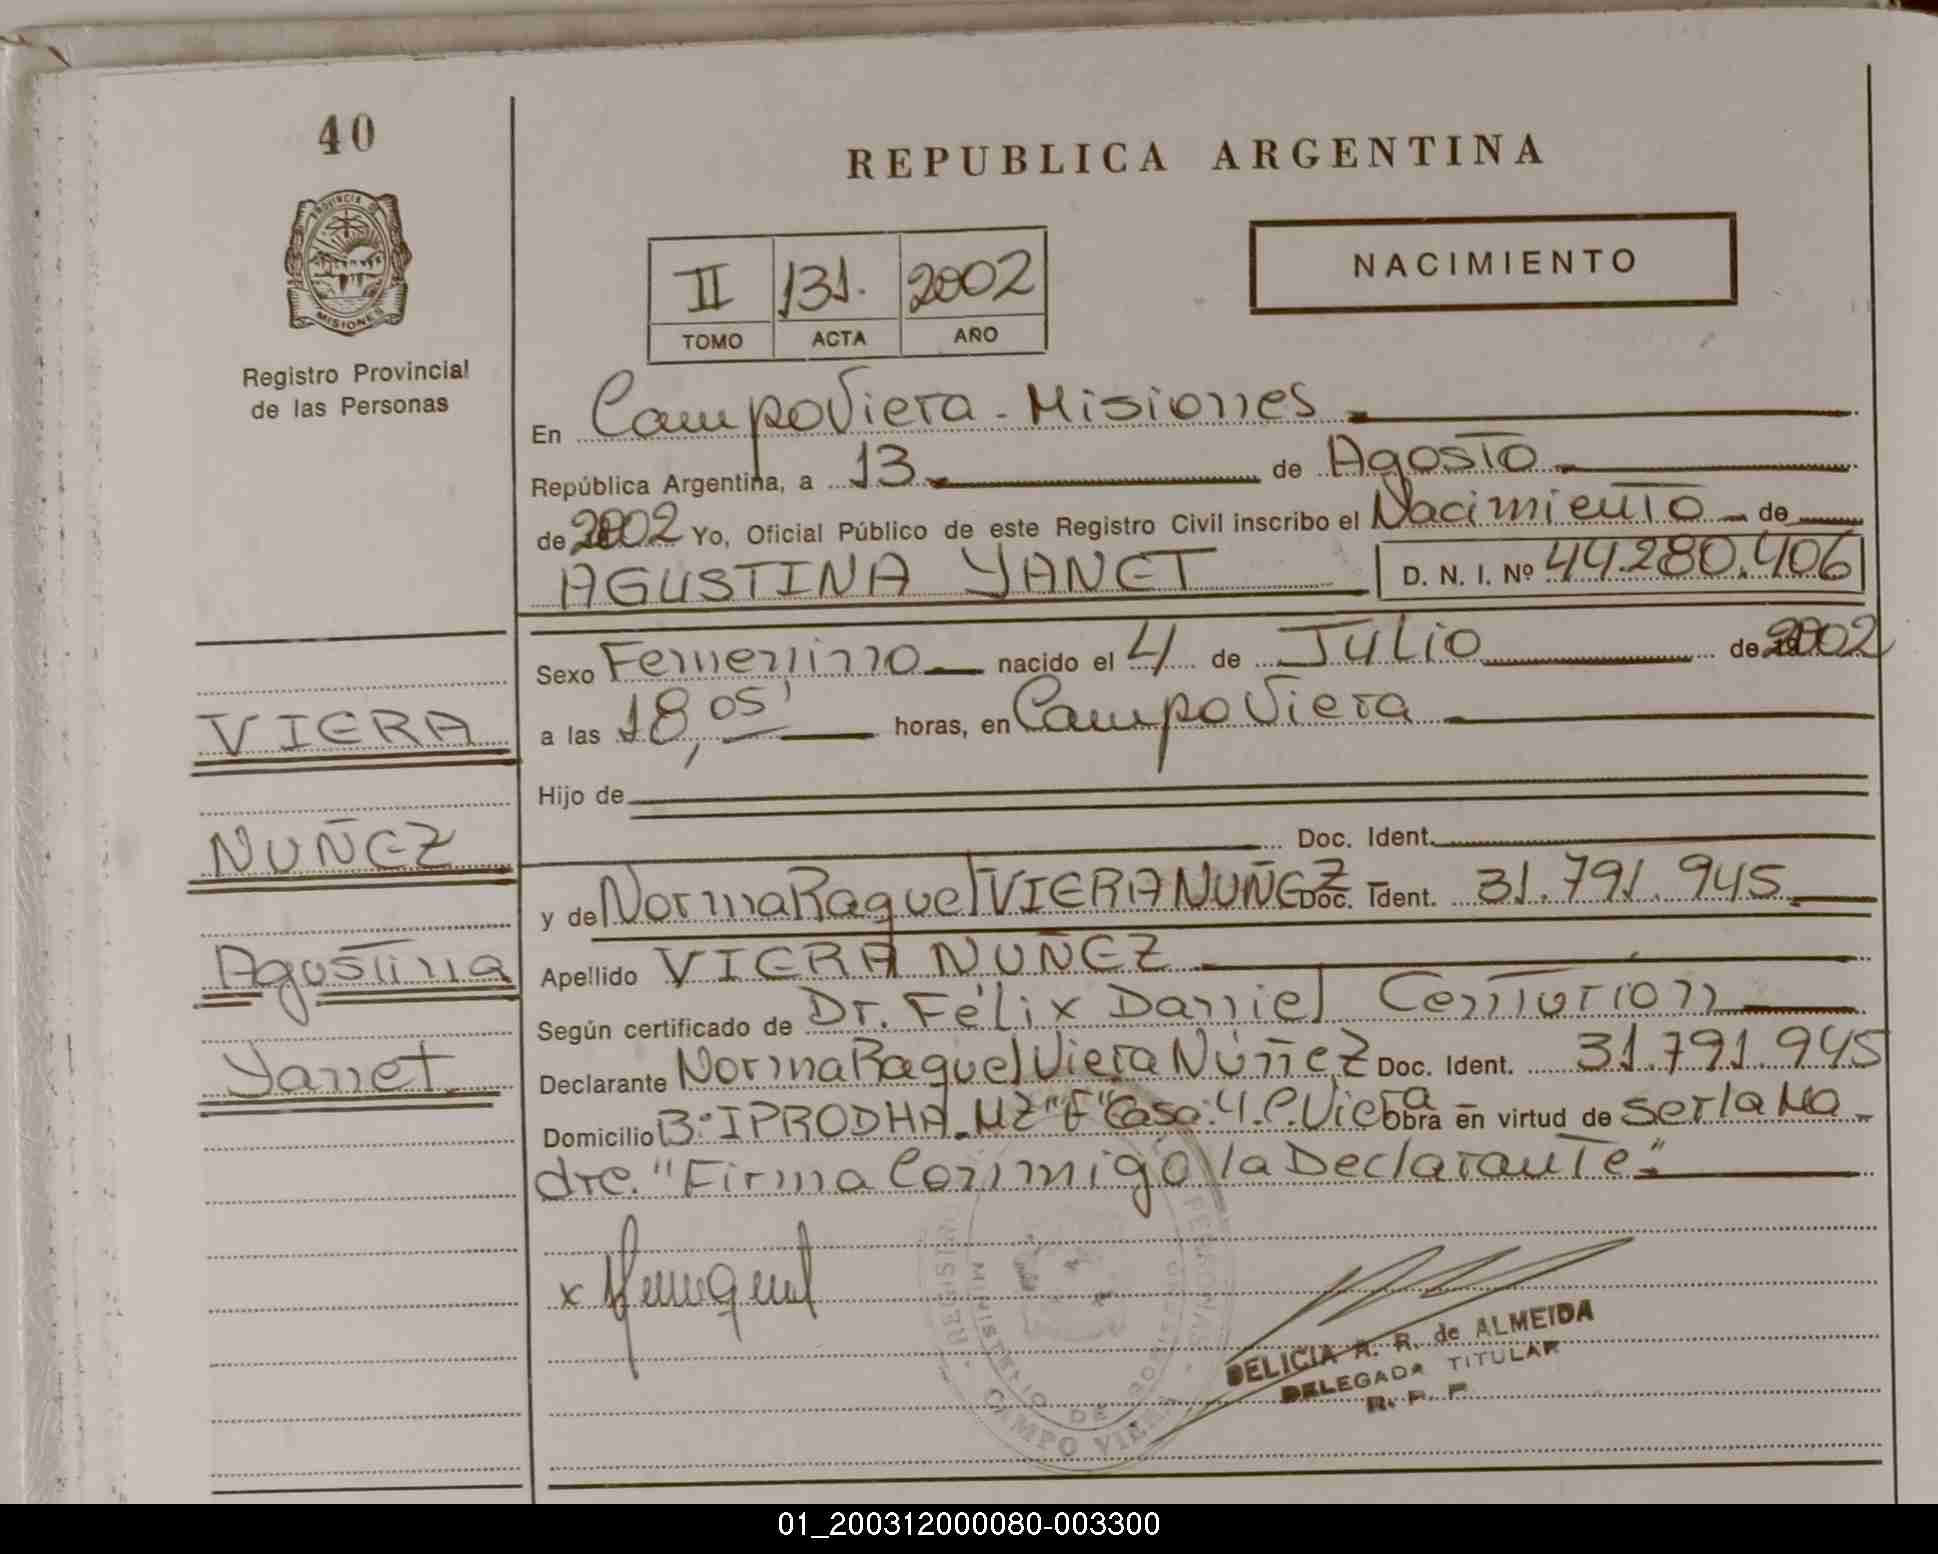 40
REPUBLICA ARGENTINA
PROVINCIA D
MISIONES
Registro Provincial
de las Personas
II 131. 2002
TOMO ACTA AÑO
NACIMIENTO
En Campo Viera - Misiones
República Argentina, a 13 de Agosto
de 2002 Yo, Oficial Público de este Registro Civil inscribo el Nacimiento de
AGUSTINA YANET D. N. I. Nº 44.280.406
Sexo Femenino nacido el 4 de Julio de 2002
a las 18,05' horas, en Campo Viera
Hijo de
Doc. Ident.
y de Norma Raquel VIERA NUÑEZ Doc. Ident. 31.791.945
Apellido VIERA NUÑEZ
Según certificado de Dr. Félix Daniel Centurion
Declarante Norma Raquel Viera Núñez Doc. Ident. 31.791.945
Domicilio B° IPRODHA. MZ "F" Casa: 4. C. Viera obra en virtud de ser la Ma
dre. "Firma Conmigo la Declarante"
VIERA
NUÑEZ
Agustina
Yanet
x
MINISTERIO DE GOBIERNO
CAMPO VIERA
DELICIA A. R. de ALMEIDA
DELEGADA TITULAR
R. P. P.
01_200312000080-003300